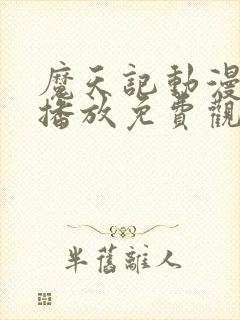 魔天記動漫
播放免費觀
半舊離人